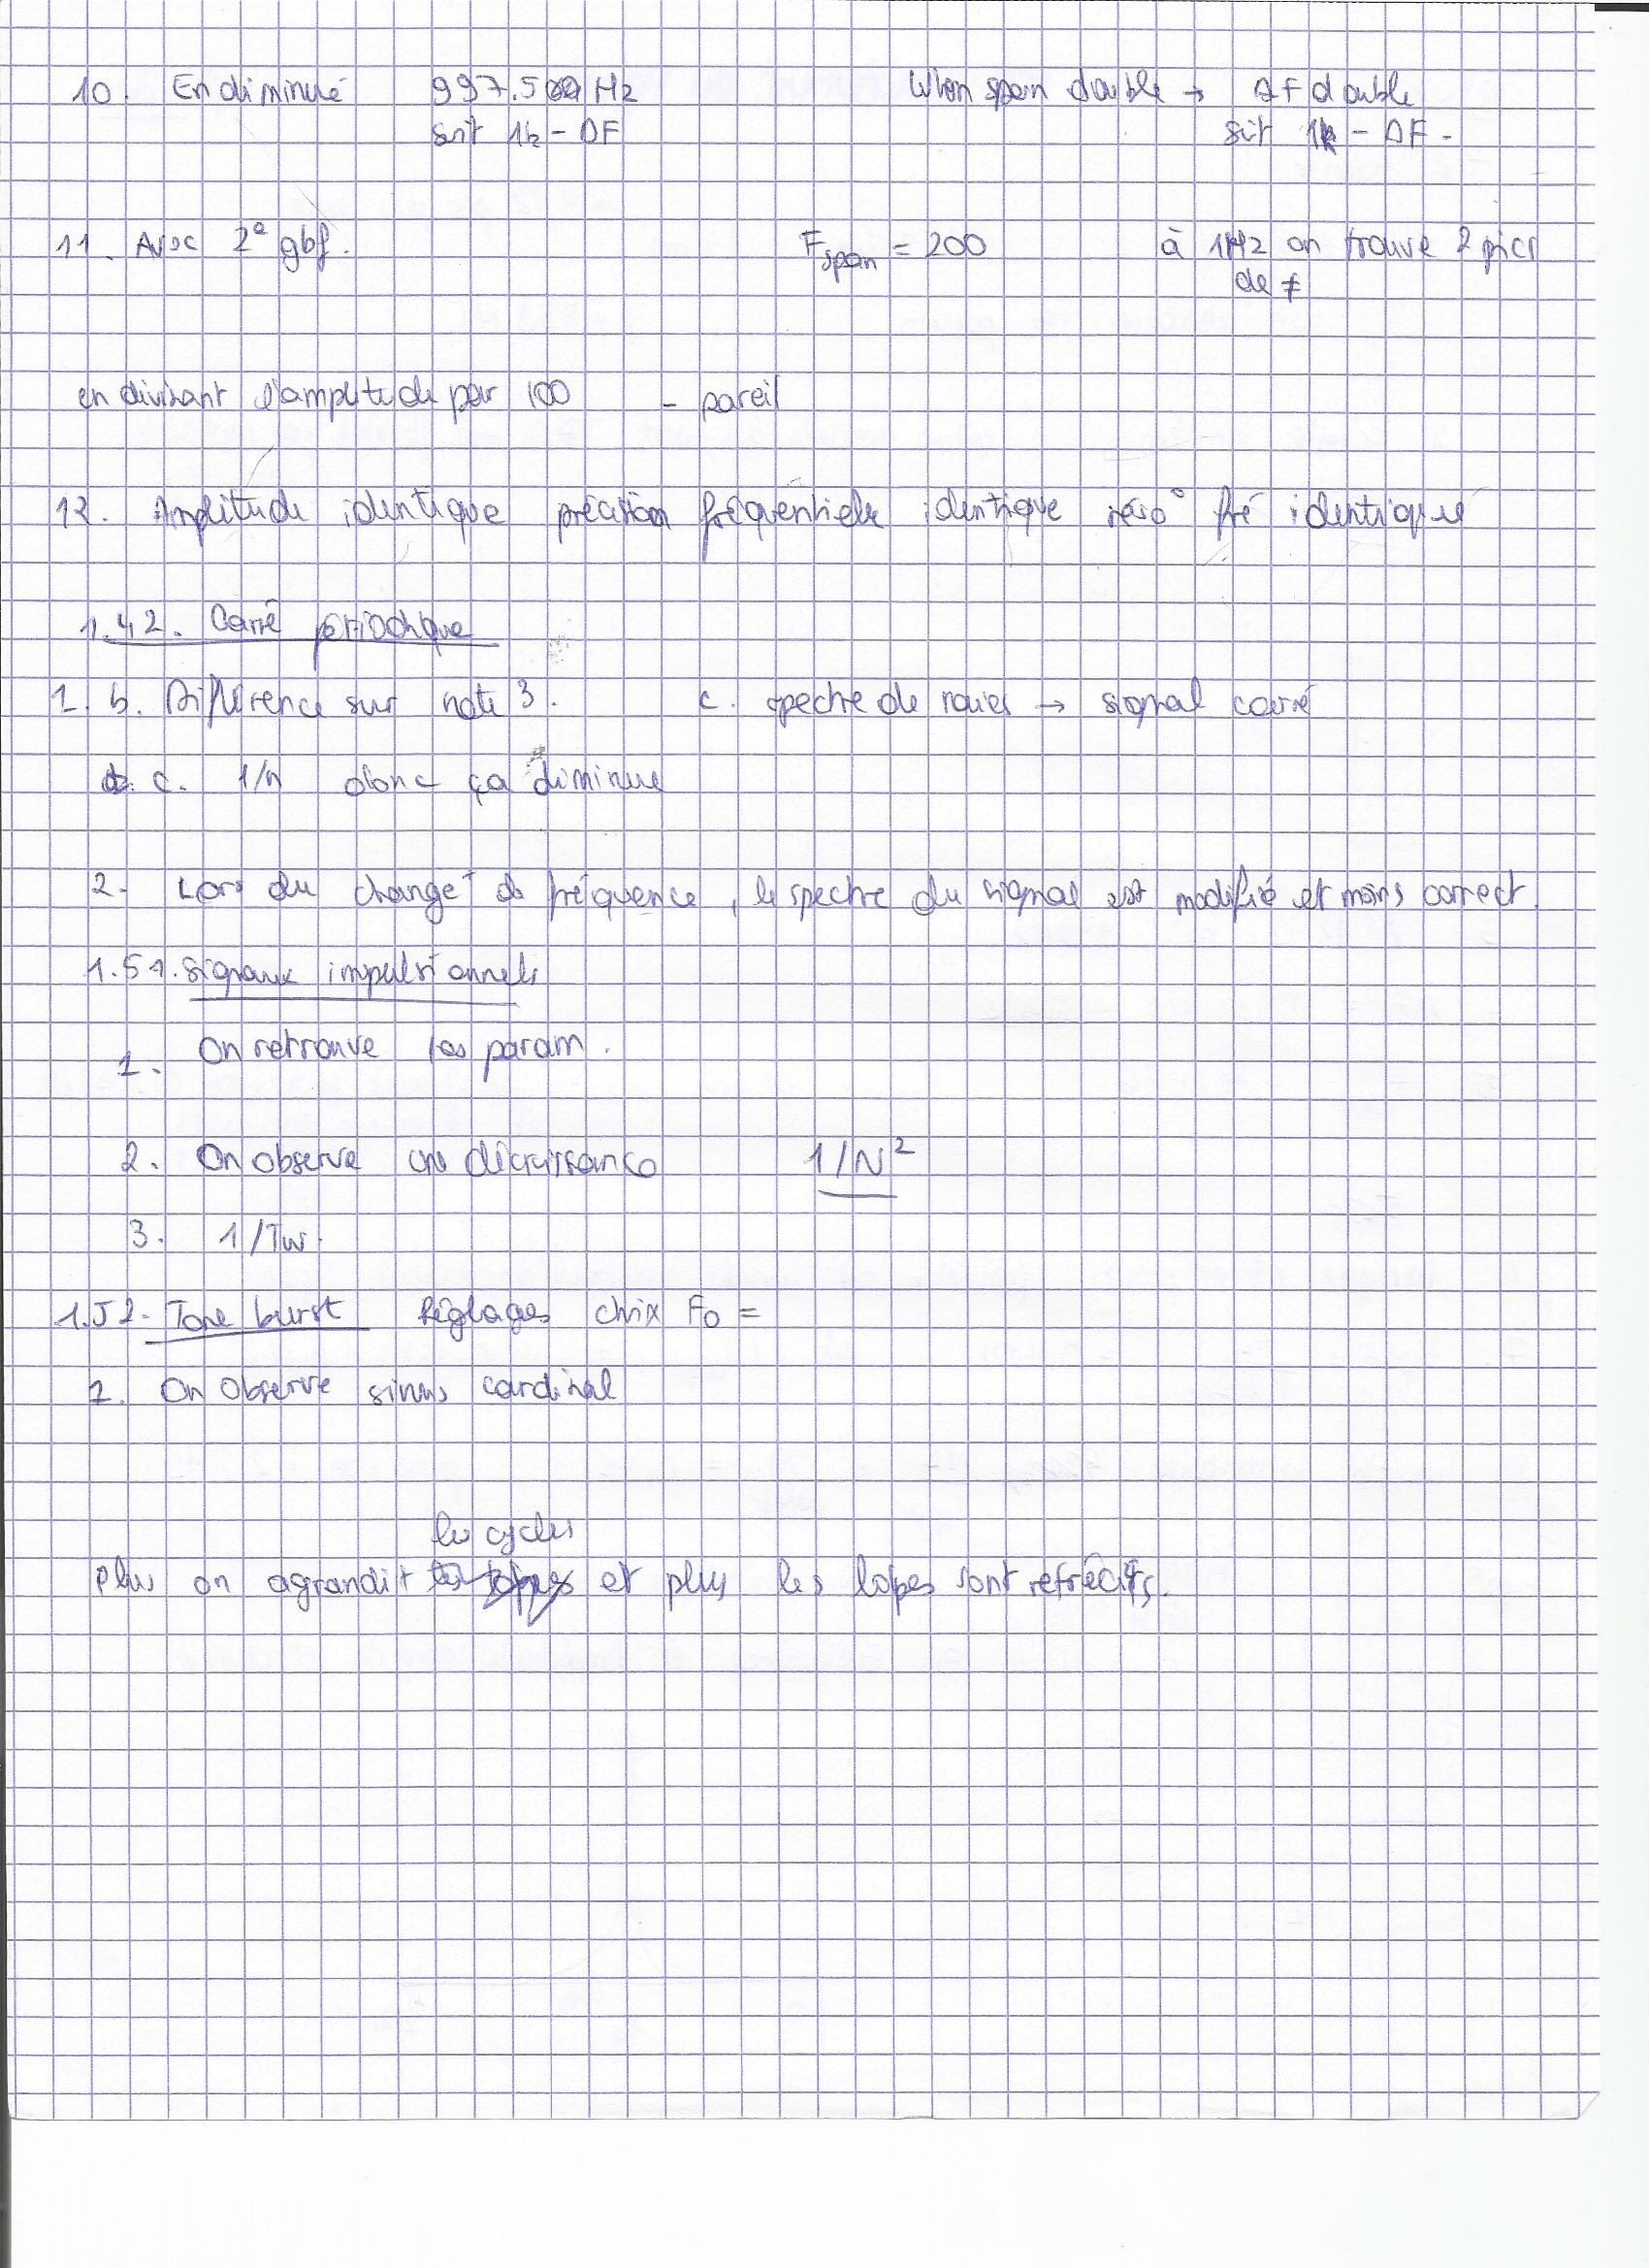 10. En diminué 997.5 Hz When span double → ΔF double
soit 1k - ΔF soit 1k - ΔF -
11. Avec 2e gbf. Fspan = 200 à 1Hz on trouve 2 pics
de ≠
en divisant l'amplitude par 100 - pareil
12. Amplitude identique précision fréquentielle identique réso° fré identique
1.42. Carré périodique
1. b. Différence sur note 3. c. spectre de raies → signal carré
c. 1/n donc ça diminue
2- Lors du changet de fréquence, le spectre du signal est modifié et moins correct.
1.51. Signaux impulsionnels
1. On retrouve les param.
2. On observe une décroissance 1/N²
3. 1/Tw.
1.52- Tone burst Réglages choix F0 =
1. On observe sinus cardinal
les cycles
Plus on agrandit et plus les lobes sont rétrécis.